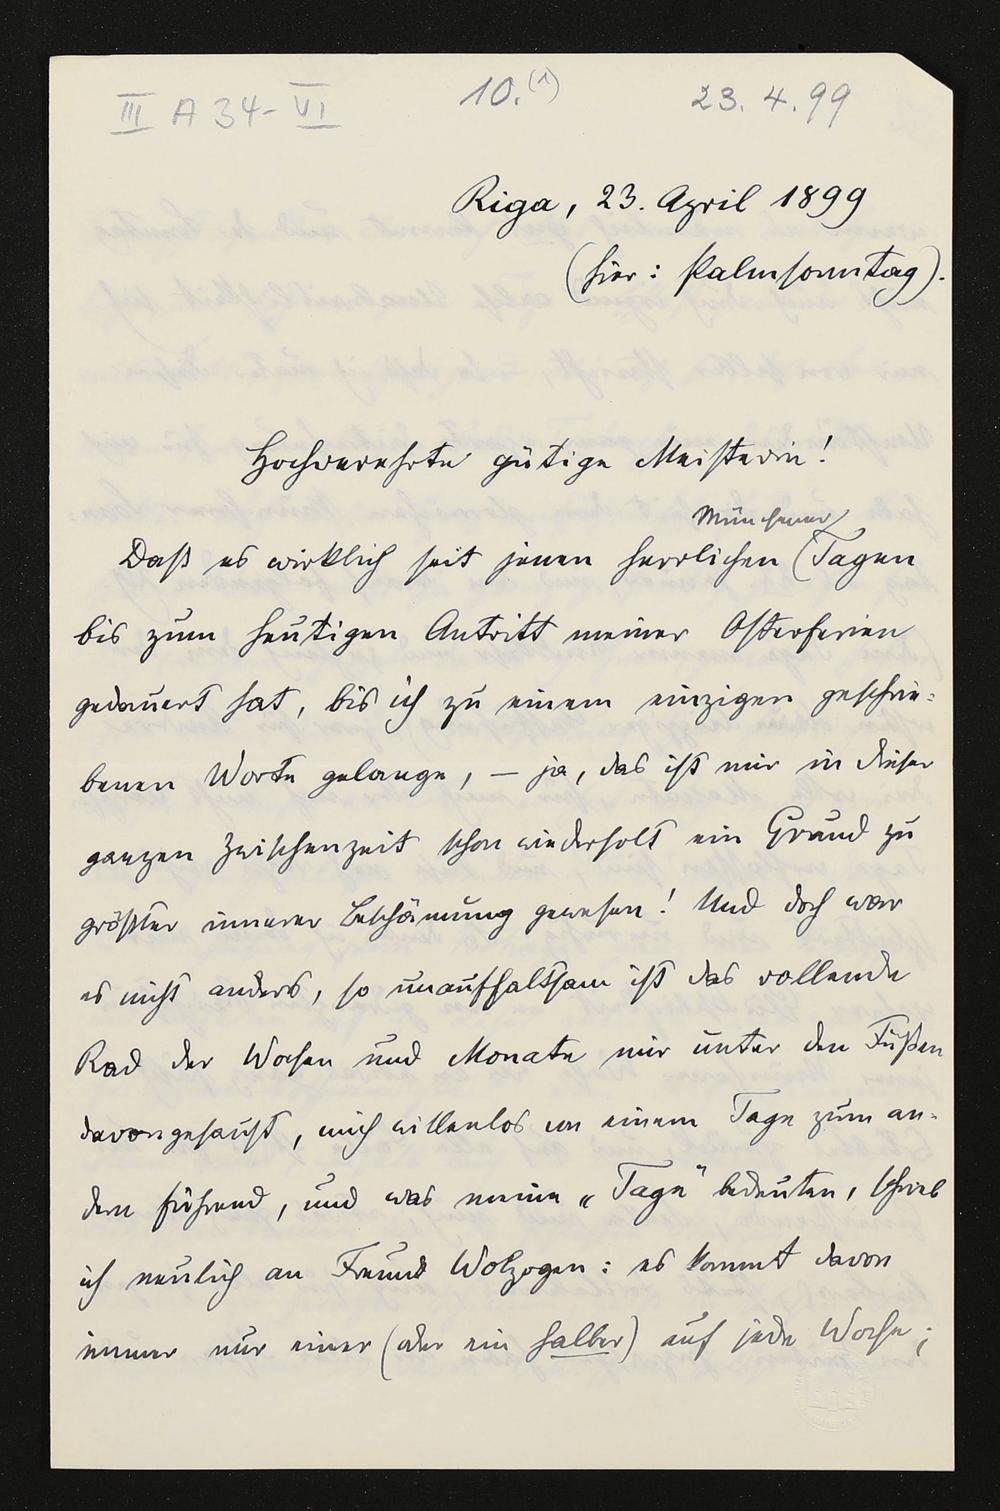 III A 34-VI 10.(1) 23.4.99
Riga, 23. April 1899
(hier: Palmsonntag).
Hochverehrte gütige Meisterin!
Münchener
Daß es wirklich seit jenen herrlichen (Tagen
bis zum heutigen Antritt meiner Osterferien
gedauert hat, bis ich zu einem einzigen geschrie-
benen Worte gelange, – ja, das ist mir in dieser
ganzen Zwischenzeit schon wiederholt ein Grund zu
größter innerer Beschämung gewesen! Und doch war
es nicht anders, so unaufhaltsam ist das rollende
Rad der Wochen und Monate mir unter den Füßen
davongesaust, mich willenlos von einem Tage zum an-
dern führend, und was meine „Tage" bedeuten, schrieb
ich neulich an Freund Wolzogen: es kommt davon
immer nur einer (oder ein halber) auf jede Woche;